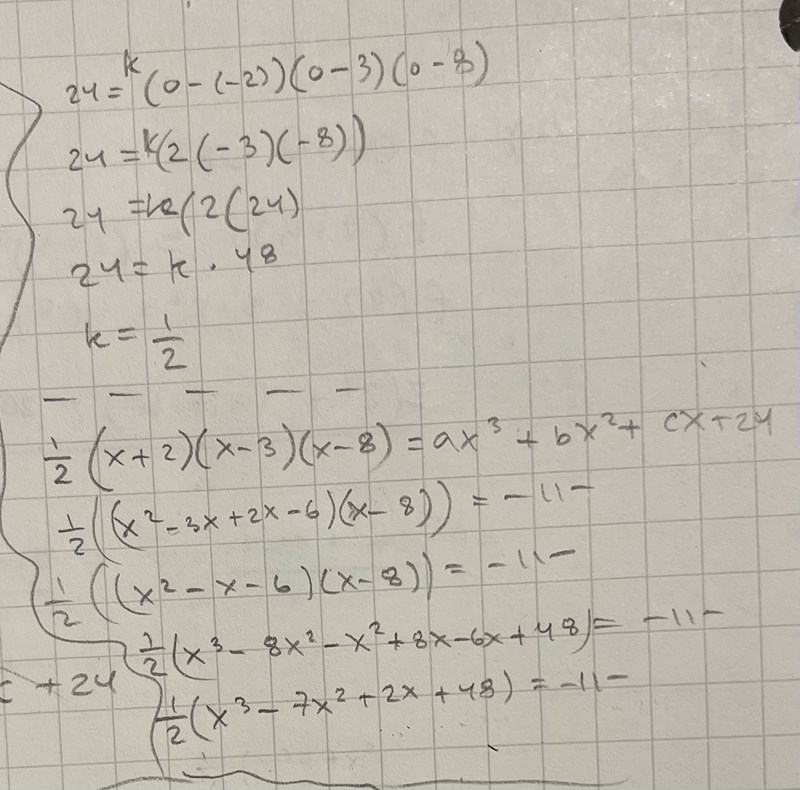 24 = k(0-(-2))(0-3)(0-8)
24 = k(2(-3)(-8))
24 = k(2(24)
24 = k · 48
k = 1/2
— — — — —
1/2 (x+2)(x-3)(x-8) = ax³ + bx² + cx + 24
1/2 ((x²-3x+2x-6)(x-8)) = -11-
1/2 ((x²-x-6)(x-8)) = -11-
1/2 (x³-8x²-x²+8x-6x+48) = -11-
+ 24
1/2 (x³-7x²+2x+48) = -11-